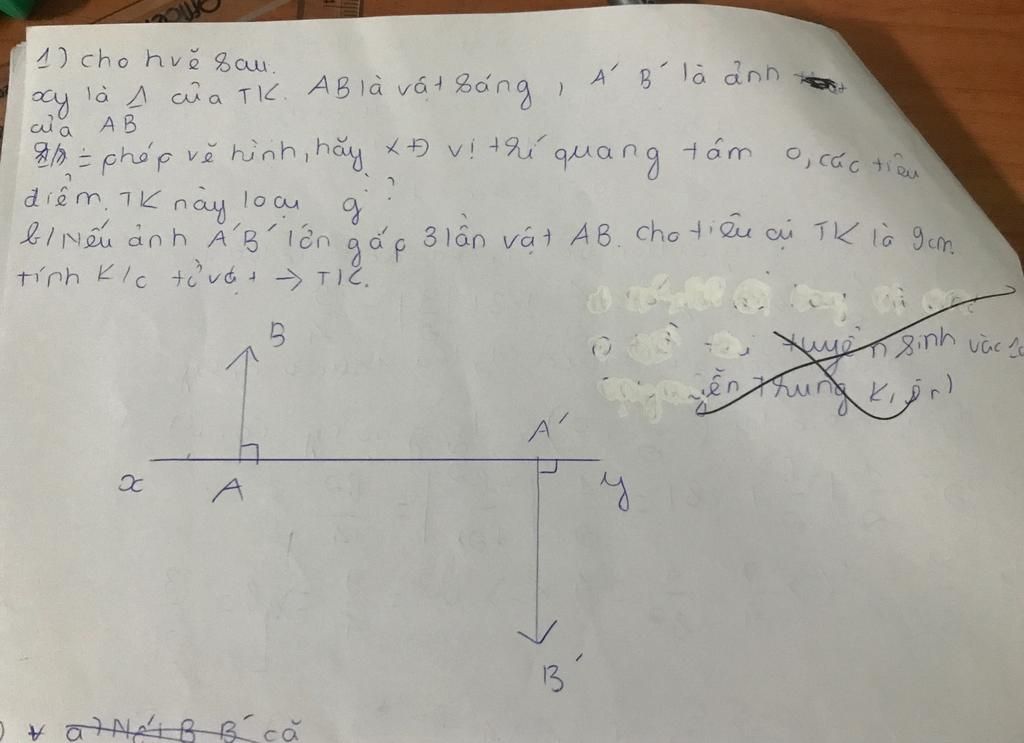 1) cho h vẽ sau.
xy là Δ của TK. AB là vật sáng, A' B' là ảnh
của AB
= phép vẽ hình, hãy XĐ vị trí quang tâm O, các tiêu
điểm. TK này loại gì?
b/ Nếu ảnh A'B' lớn gấp 3 lần vật AB. cho tiêu cự TK là 9cm.
tính K/c từ vật → TK.
tuyển sinh vào 10
B
A'
x
A
y
B'
a) Nối B B' cắ